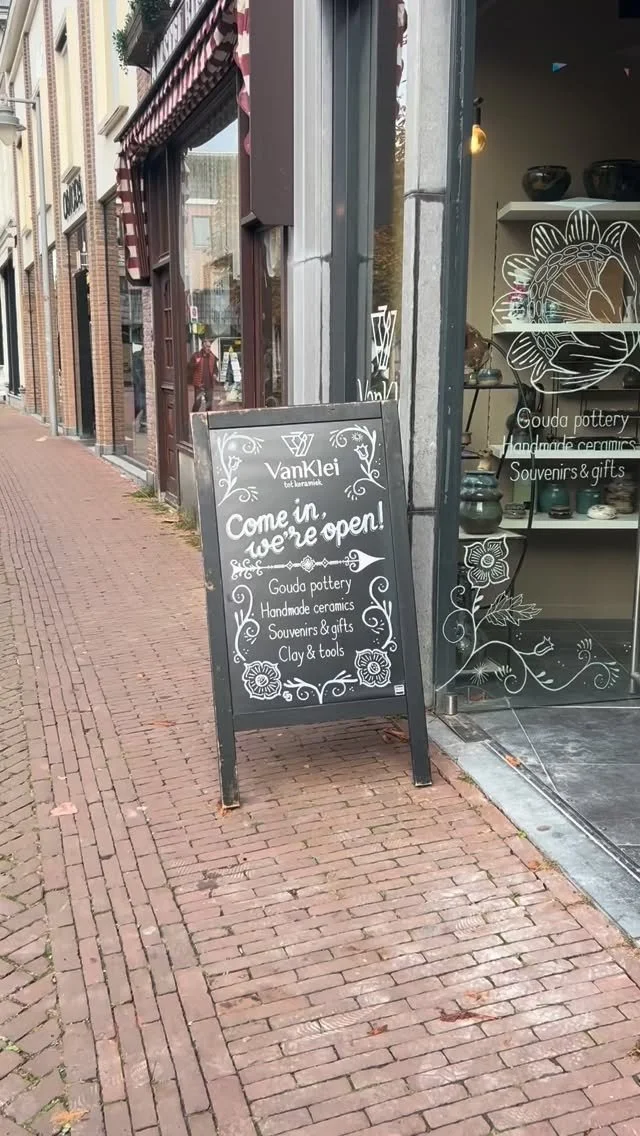 VanKlei
tot keramiek
Come in,
we're open!
Gouda pottery
Handmade ceramics
Souvenirs & gifts
Clay & tools
Gouda pottery
Handmade ceramics
Souvenirs & gifts